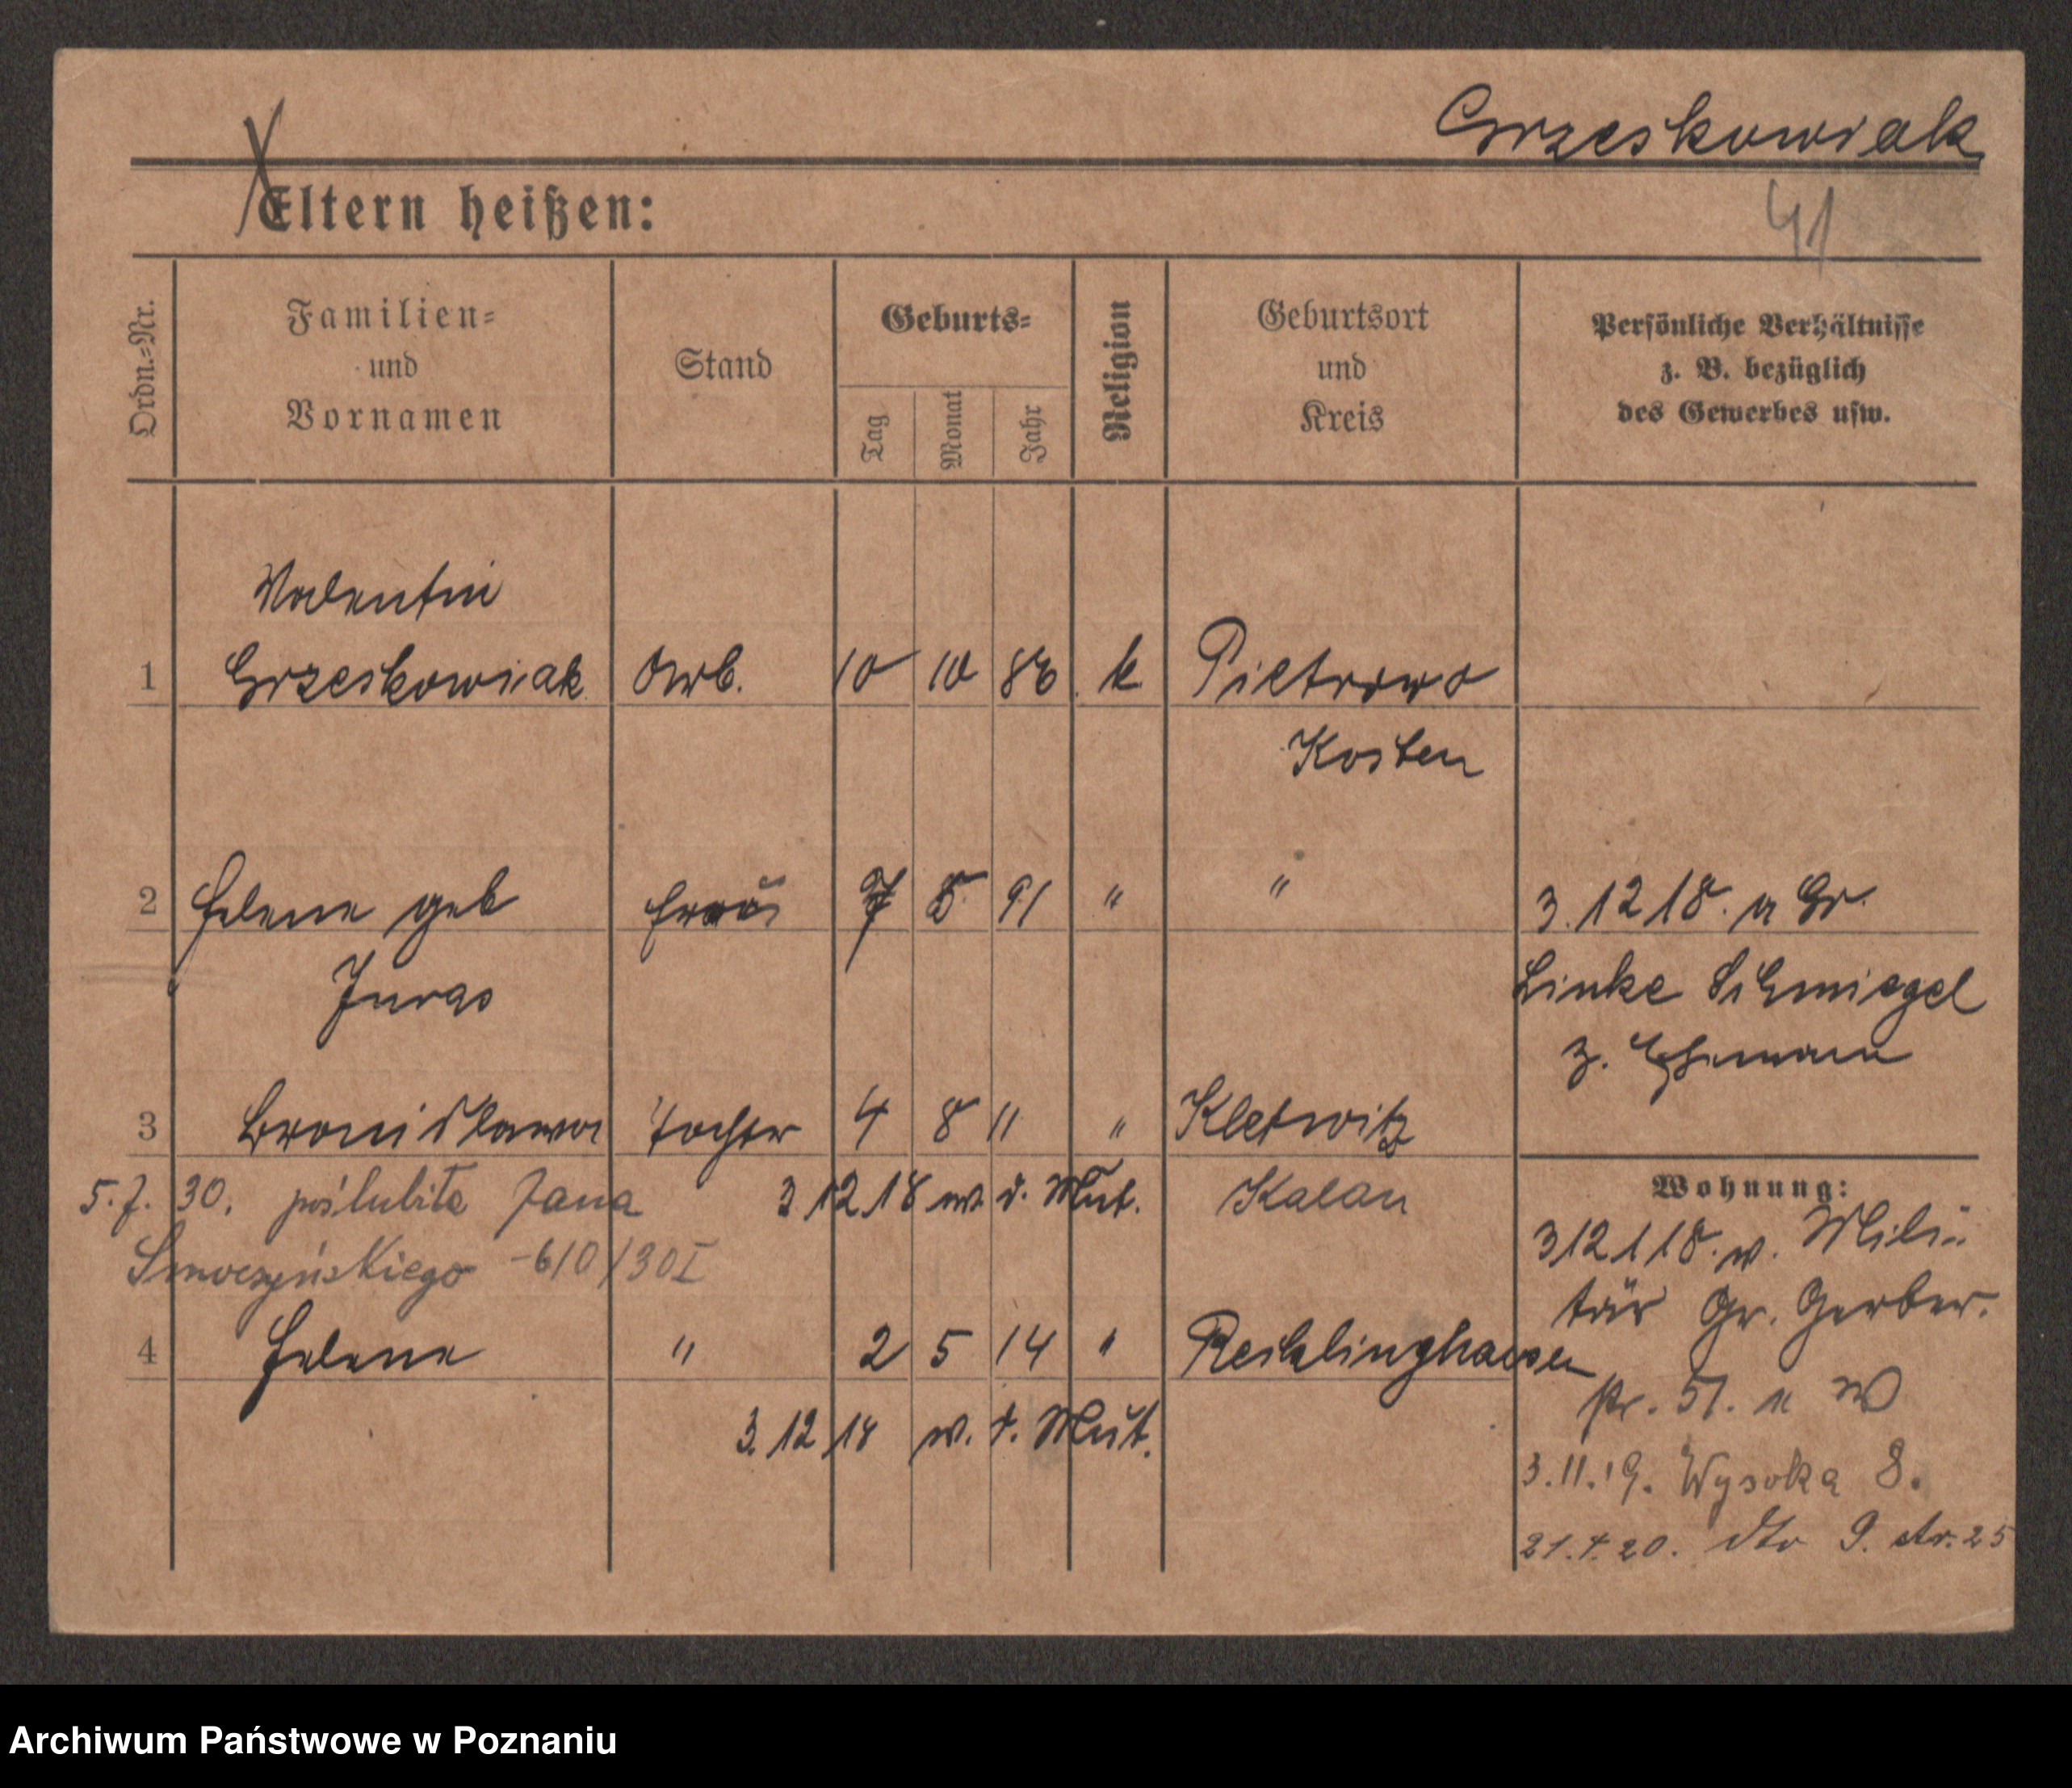 Grzeskowiak
Eltern heißen:
41
Ordn.-Nr.
Familien-
und
Vornamen
Stand
Geburts-
Tag
Monat
Jahr
Religion
Geburtsort
und
Kreis
Persönliche Verhältnisse
z. B. bezüglich
des Gewerbes usw.
Valentin
1 Grzeskowiak Arb. 10 10 86 k. Pietrowo
Kosten
2 Helene geb 7 5 91 " " 3.12 18.
Juras
Linke Schmiegel
z. Ehemann
3 Bronislawa Tochter 4 8 11 " Klettwitz
Wohnung:
5.7. 30. poślubiła Jana 3 12 18 d. Mut. Kalau
Smoczyńskiego -610/30I
3 12 118. v. Mili-
tär Gr. Gerber.
4 Helene " 2 5 14 " Recklinghausen
str. 51.
3.12 18 Mut.
3.11.19. Wysoka 8.
21.4.20. dto 9. str. 25
Archiwum Państwowe w Poznaniu